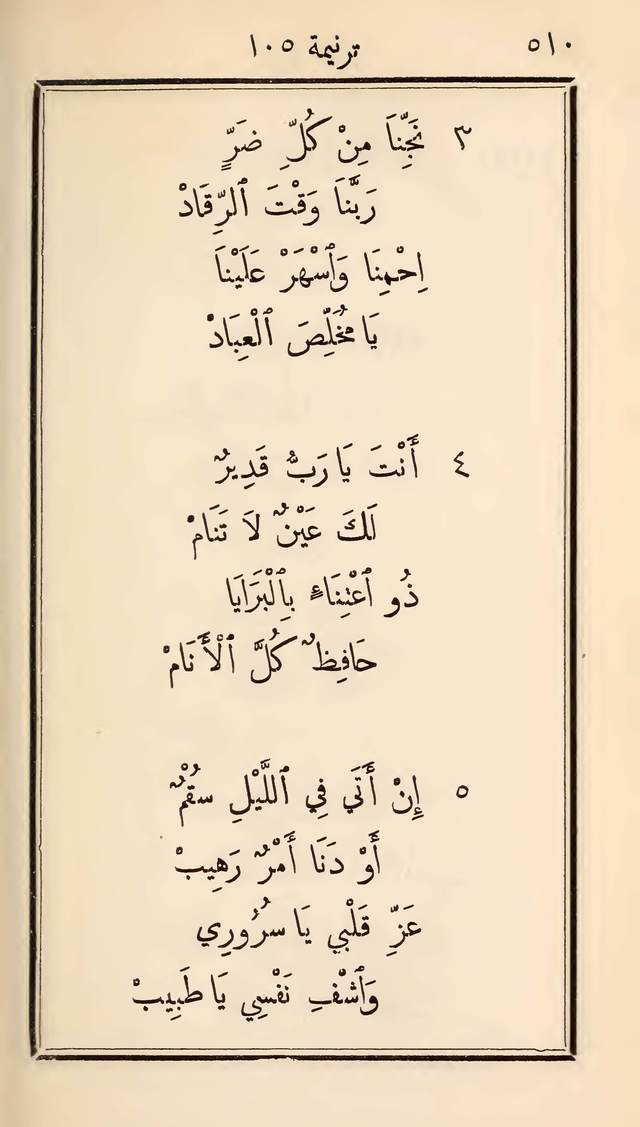 ٥١٠ ترنيمة ١٠٥
٣ نَجِّنَا مِنْ كُلِّ ضَرٍّ
رَبَّنَا وَقْتَ ٱلرِّقَادْ
اِحْمِنَا وَٱسْهَرْ عَلَيْنَا
يَا مُخَلِّصَ ٱلْعِبَادْ
٤ أَنْتَ يَا رَبُّ قَدِيرٌ
لَكَ عَيْنٌ لَا تَنَامْ
ذُو ٱعْتِنَاءٍ بِٱلْبَرَايَا
حَافِظٌ كُلَّ ٱلْأَنَامْ
٥ إِنْ أَتَى فِي ٱللَّيْلِ سُقْمٌ
أَوْ دَنَا أَمْرٌ رَهِيبْ
عَزِّ قَلْبِي يَا سُرُورِي
وَٱشْفِ نَفْسِي يَا طَبِيبْ